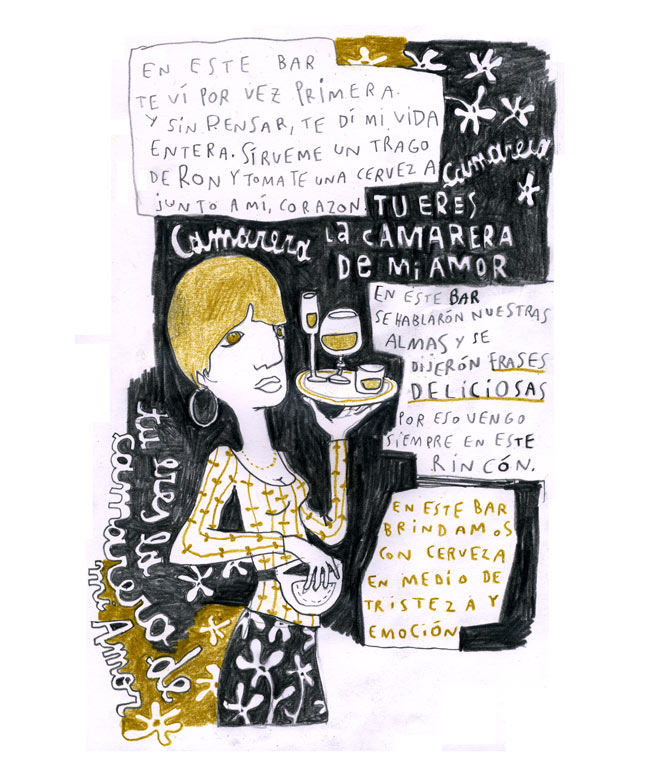 EN ESTE BAR
TE VÍ POR VEZ PRIMERA.
Y SIN PENSAR, TE DÍ MI VIDA
ENTERA. SÍRVEME UN TRAGO
DE RON Y TOMATE UNA CERVEZA
JUNTO A MÍ, CORAZON.
Camarera
TU ERES
Camarera
LA CAMARERA
DE MI AMOR
EN ESTE BAR
SE HABLARÓN NUESTRAS
ALMAS Y SE
DIJERÓN FRASES
DELICIOSAS
POR ESO VENGO
SIEMPRE EN ESTE
RINCÓN.
EN ESTE BAR
BRINDAMOS
CON CERVEZA
EN MEDIO DE
TRISTEZA Y
EMOCIÓN
tu eres la
camarera de
mi Amor